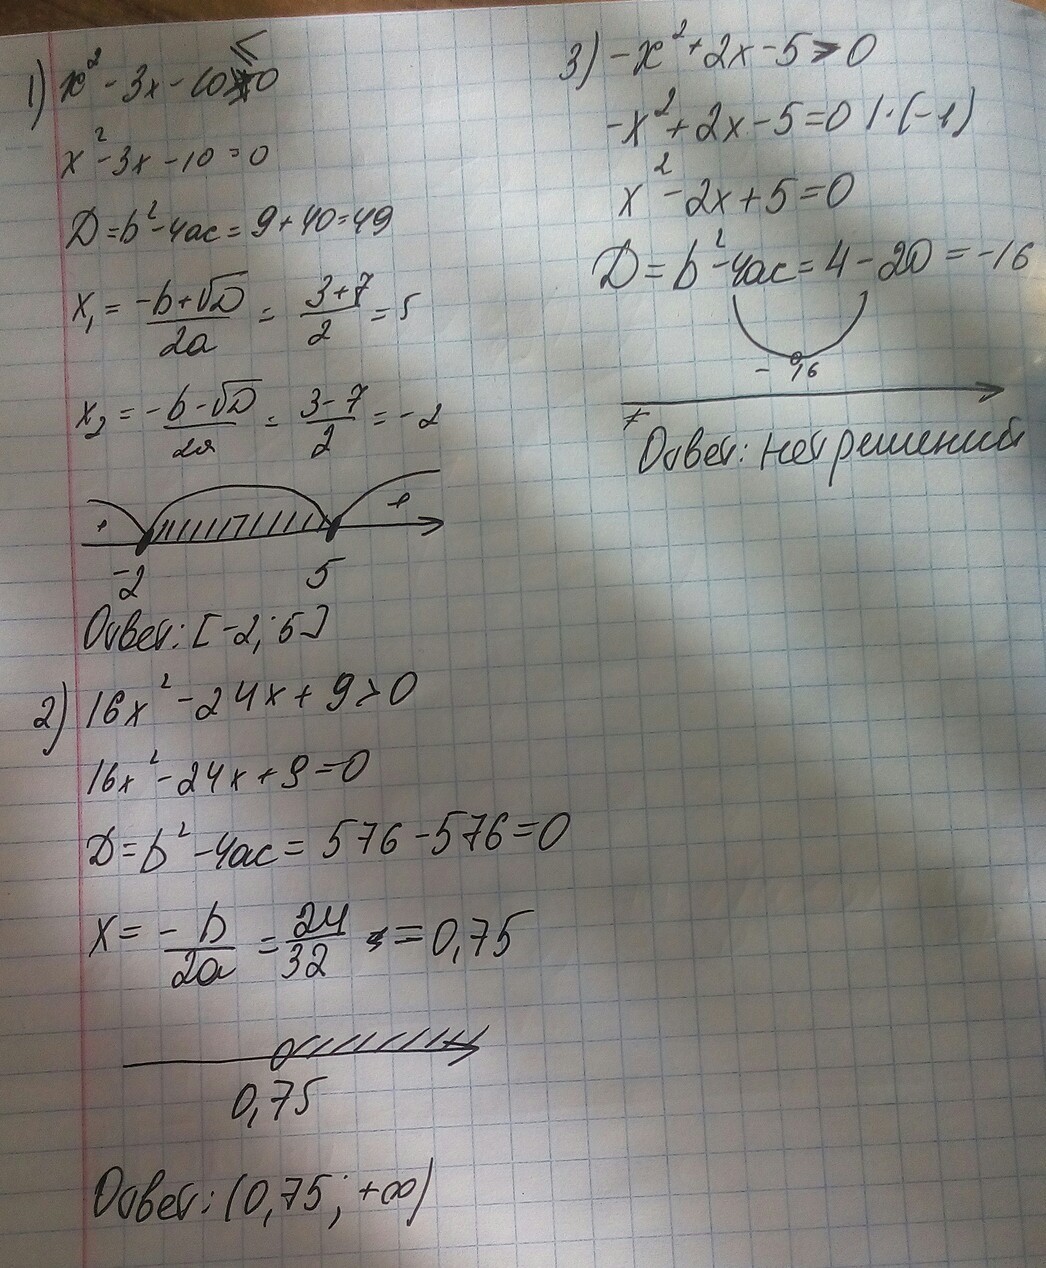 1) x² - 3x - 10 ≤ 0
x² - 3x - 10 = 0
D = b² - 4ac = 9 + 40 = 49
x₁ = (-b + √D)/2a = (3 + 7)/2 = 5
x₂ = (-b - √D)/2a = (3 - 7)/2 = -2
+ +
-2 5
Ответ: [-2; 5]
2) 16x² - 24x + 9 > 0
16x² - 24x + 9 = 0
D = b² - 4ac = 576 - 576 = 0
x = -b/2a = 24/32 = 0,75
0,75
Ответ: (0,75; +∞)
3) -x² + 2x - 5 > 0
-x² + 2x - 5 = 0 | · (-1)
x² - 2x + 5 = 0
D = b² - 4ac = 4 - 20 = -16
-16
Ответ: нет решений